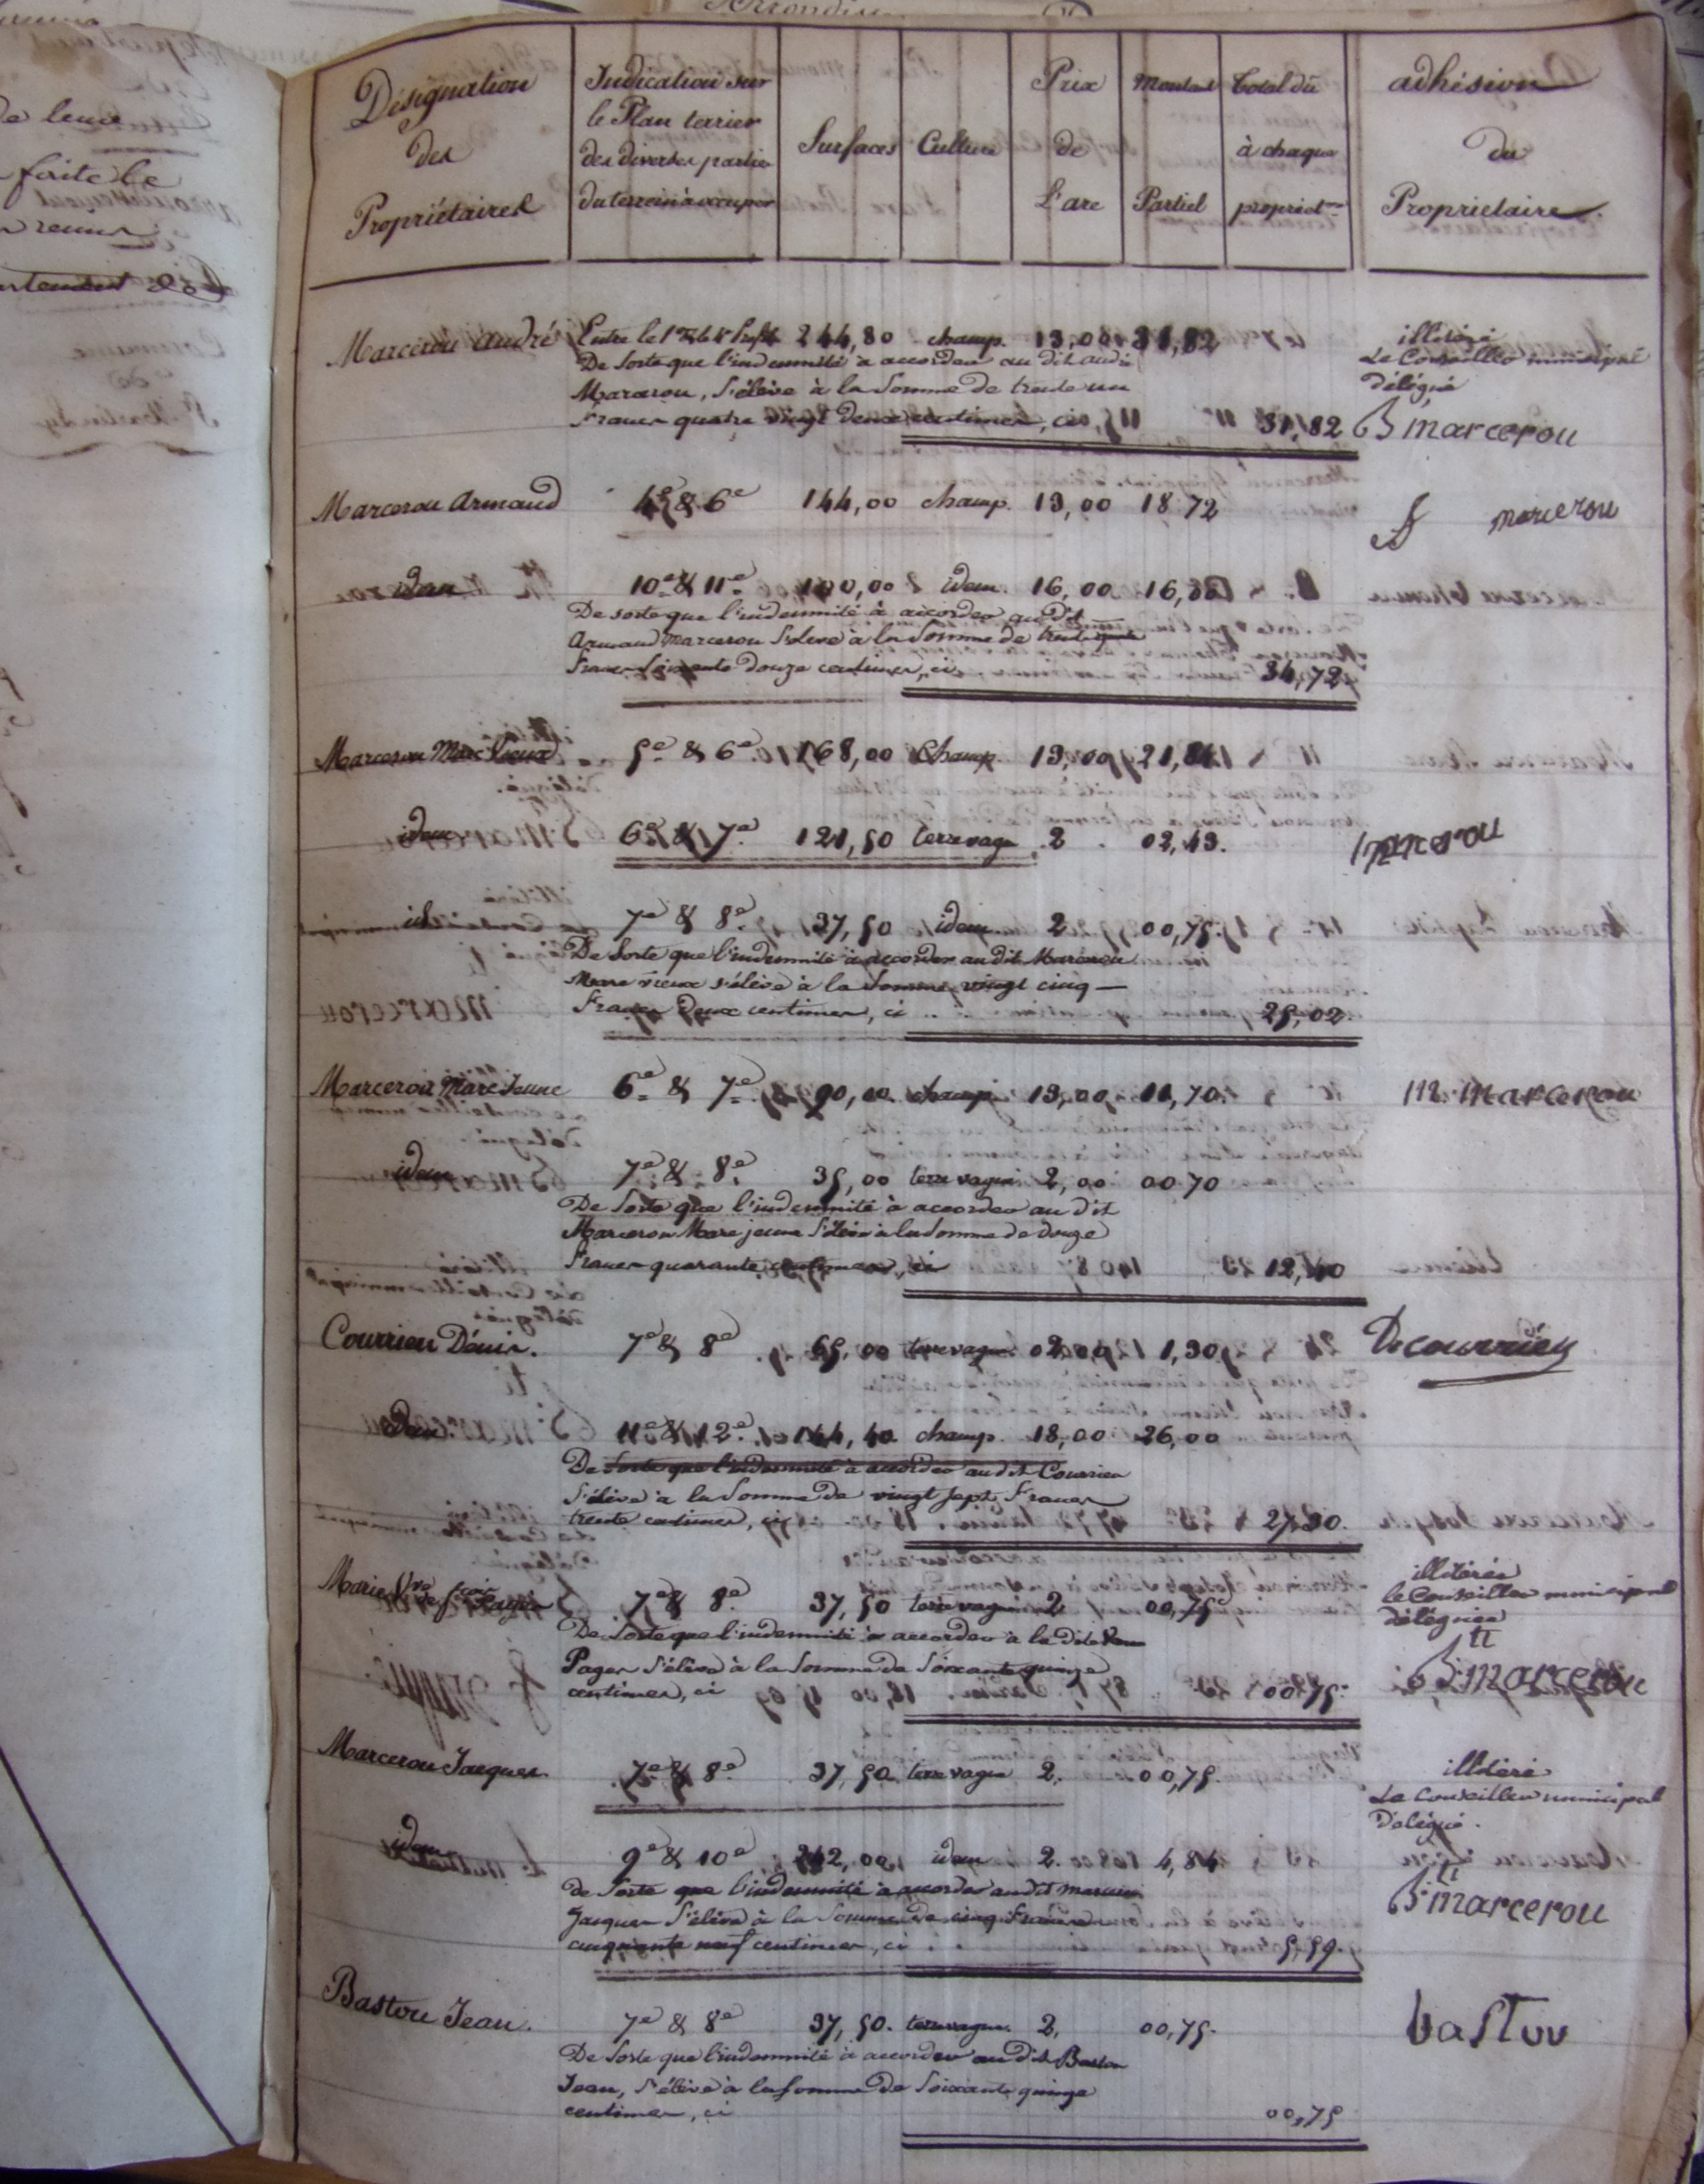 de leur
faite le
Désignation des Propriétaires
Indication sur le Plan terrier des diverses parties du terrein à occuper
Surfaces
Culture
Prix de l'are
Montant Partiel
Total dû à chaque propriét.re
adhésion du Propriétaire
Marcerou André Entre le 1er & le 4e profil 244,80 champ. 13,00 31,82 illitéré
De sorte que l'indemnité à accorder au dit André Le Conseiller municipal
Marcerou, s'élève à la Somme de trente un délégué
Francs quatre vingt deux centimes, ci 31,82 B marcerou
Marcerou Armand 4e & 6e 144,00 champ. 13,00 18 72 marcerou
idem 10e & 11e 100,00 idem 16,00 16,00
De sorte que l'indemnité à accorder au dit
Armand Marcerou s'élève à la Somme de trente quatre
Francs soixante douze centimes, ci 34,72
Marcerou Marc Vieux 5e & 6e 168,00 Champ. 13,00 21,84
idem 6e & 7e 121,50 terre vague 2 02,43. marcerou
id 7e & 8e 37,50 idem 2 00,75.
De Sorte que l'indemnité à accorder au dit Marcerou
Marc vieux s'élève à la Somme vingt cinq
Francs Deux centimes, ci 25,02.
Marcerou Marc Jeune 6e & 7e 90,00 champ. 13,00 11,70. m. marcerou
idem 7e & 8e 35,00 terre vague 2,00 00 70
De Sorte que l'indemnité à accorder au dit
Marcerou Marc jeune s'élève à la Somme de douze
Francs quarante centimes, ci 12,40
Courrieu Dénis. 7e & 8e 65,00 terre vague. 02,00 1,30 De courrieu
idem 11e & 12e 144,40 champ. 18,00 26,00
De Sorte que l'indemnité à accorder au dit Courrieu
S'élève à la Somme de vingt sept Francs
trente centimes, ci 27,30.
Marie Vve de fçois Pagès 7e & 8e 37,50 terre vague 2 00,75 illitérée
De Sorte que l'indemnité à accorder à la dite Veuve le Conseiller municipal
Pages S'élève à la Somme de Soixante quinze délégué
centimes, ci 00 75. B marcerou
Marcerou Jacques. 7e & 8e 37,50 terre vague 2. 00,75. illitéré
Le Conseiller municipal
Délégué.
idem 9e & 10e 242,00 idem 2. 4,84
de Sorte que l'indemnité à accorder au dit Marcerou
Jacques S'élève à la Somme de cinq Francs B marcerou
cinquante neuf centimes, ci 5,59.
Bastou Jean. 7e & 8e 37,50. terre vague. 2, 00,75. bastou
De Sorte que l'indemnité à accorder au dit Bastou
Jean, S'élève à la Somme de Soixante quinze
centimes, ci 00,75